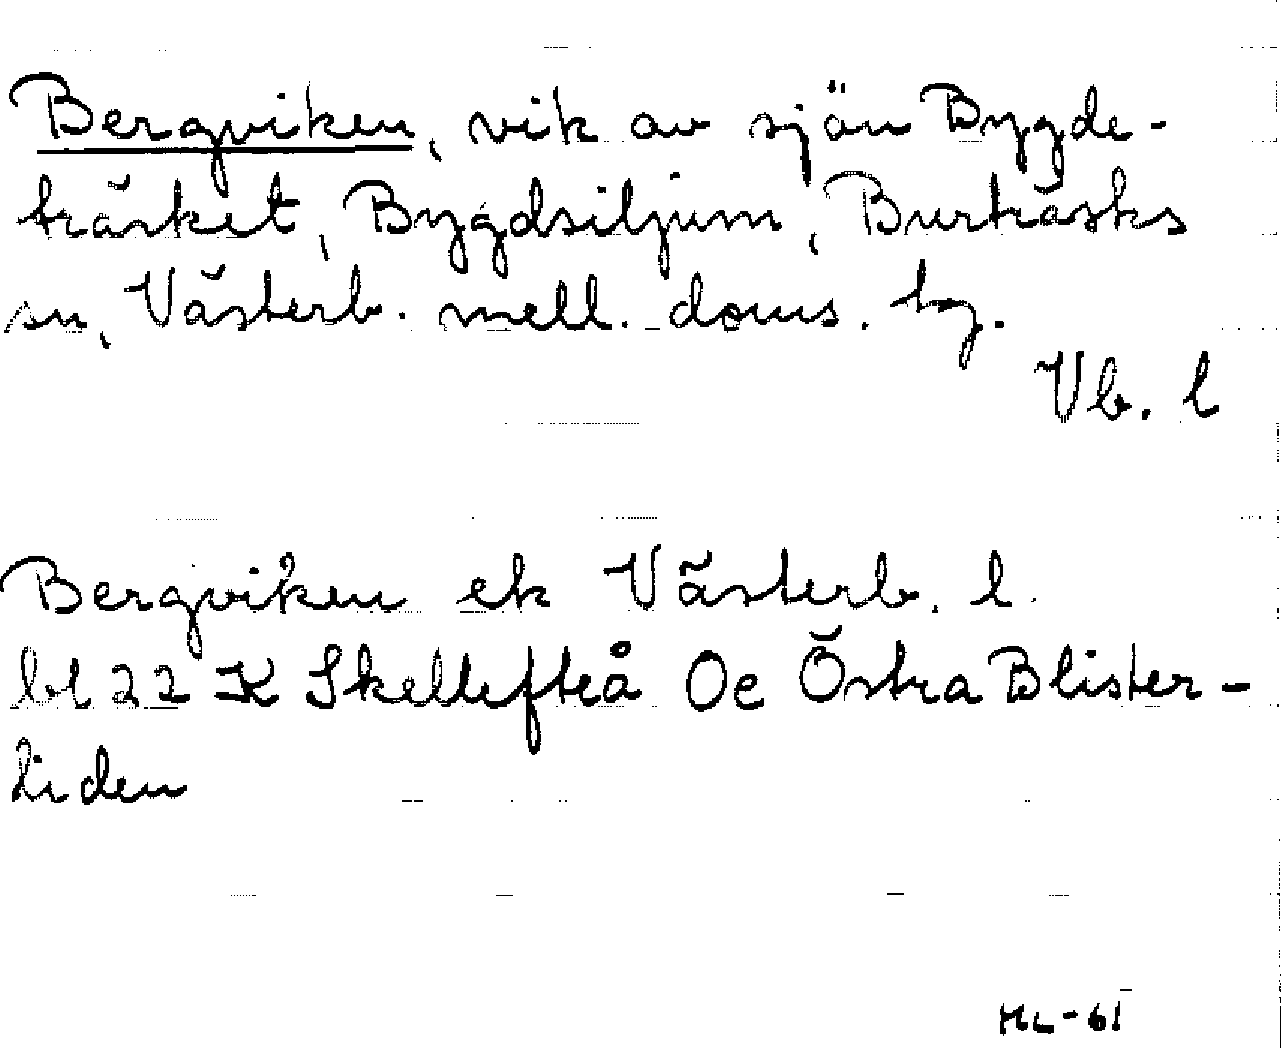 Bergviken, vik av sjön Bygde-
träsket, Bygdsiljum, Burträsks
sn, Västerb. mell. doms. tg.
Vb. l
Bergviken ek Västerb. l.
bl 22 K Skellefteå Oc Östra Blister-
liden
ML-61